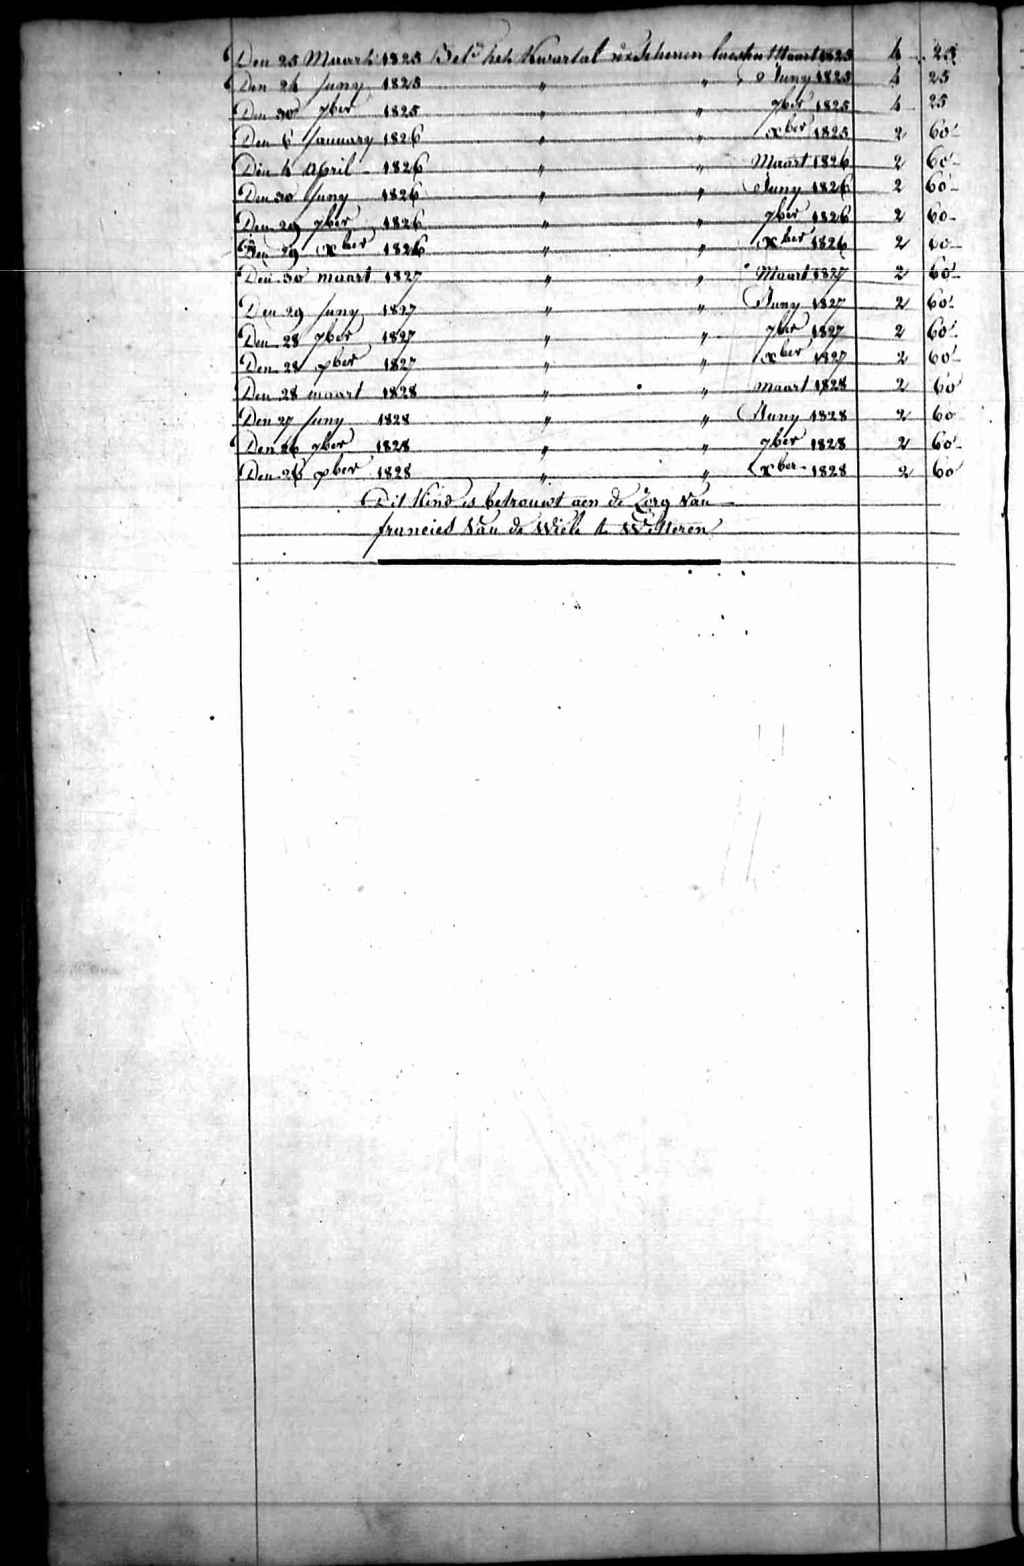 Den 25 Maart 1825 Betd het Kwartal verschenen laesten Maart 1825 4 25
Den 24 Juny 1825 " " Juny 1825 4 25
Den 30 7ber 1825 " " 7ber 1825 4 25
Den 6 January 1826 " " xber 1825 2 60
Den 4 April 1826 " " Maart 1826 2 60
Den 30 Juny 1826 " " Juny 1826 2 60
Den 29 7ber 1826 " " 7ber 1826 2 60
Den 29 xber 1826 " " xber 1826 2 60
Den 30 maart 1827 " " Maart 1827 2 60
Den 29 Juny 1827 " " Juny 1827 2 60
Den 28 7ber 1827 " " 7ber 1827 2 60
Den 28 xber 1827 " " xber 1827 2 60
Den 28 maart 1828 " " maart 1828 2 60
Den 27 Juny 1828 " " Juny 1828 2 60
Den 26 7ber 1828 " " 7ber 1828 2 60
Den 26 xber 1828 " " xber 1828 2 60
Dit Kind is betrouwt aen de Zorg Van
francies Van de Wiele te Wetteren